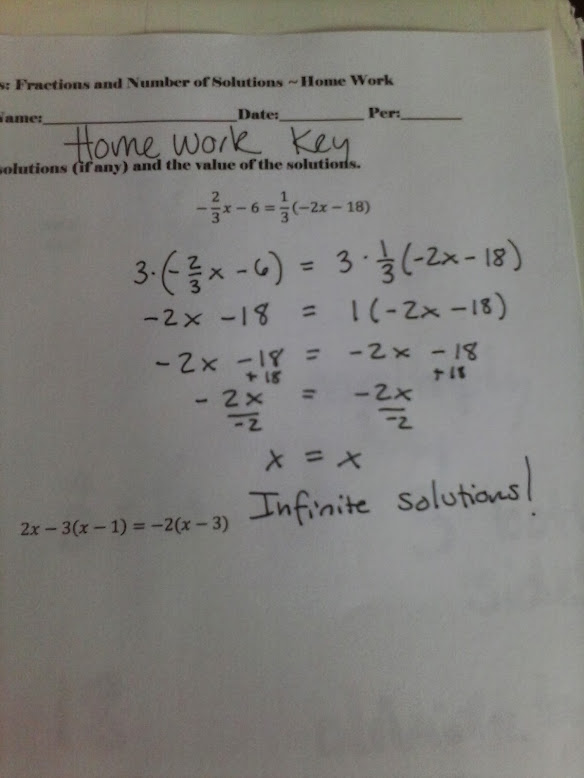 s: Fractions and Number of Solutions ~ Home Work
ame:____________________ Date:__________ Per:_______
Home work Key
olutions (if any) and the value of the solutions.
-2/3x - 6 = 1/3(-2x - 18)
3·(-2/3x - 6) = 3·1/3(-2x - 18)
-2x - 18 = 1(-2x - 18)
-2x - 18 = -2x - 18
+18 +18
-2x = -2x
-2 -2
x = x
Infinite solutions!
2x - 3(x - 1) = -2(x - 3)